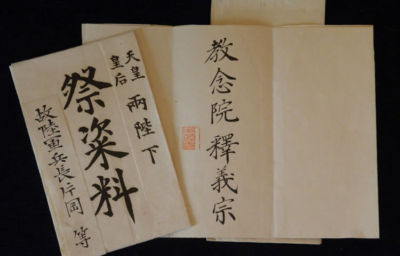 教念院釋義宗
天皇
皇后
兩陛下
祭粢料
故陸軍兵長片岡 等